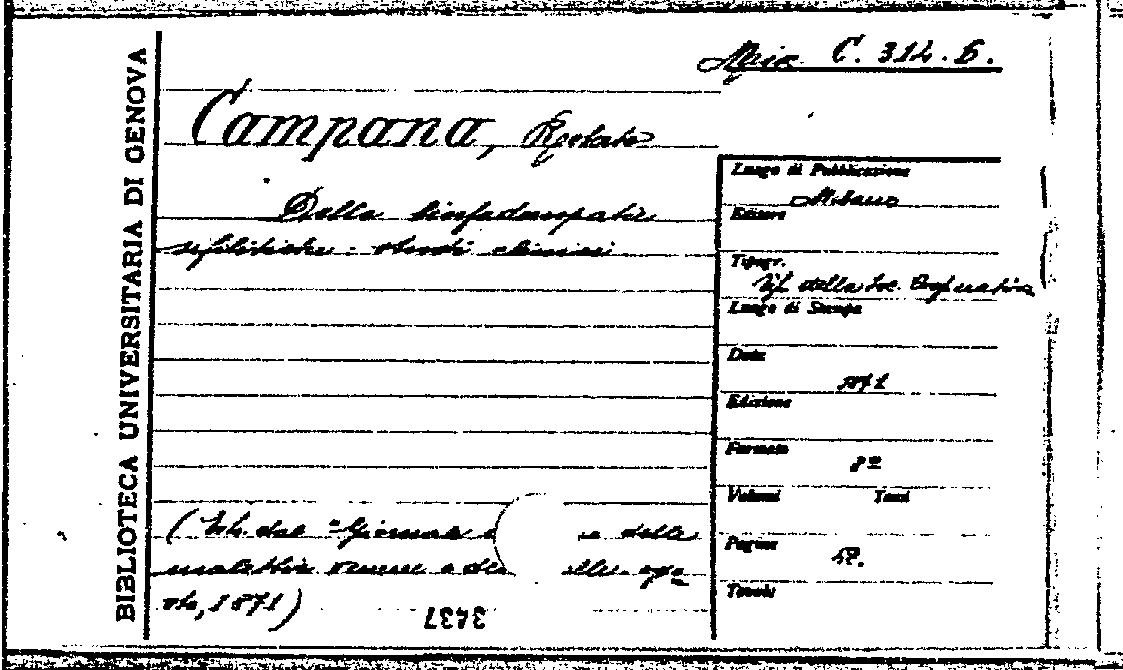 BIBLIOTECA UNIVERSITARIA DI GENOVA
Misc. C. 314. 6.
Campana, Roberto
Delle linfadenopatie
sifilitiche: studi clinici
Luogo di Pubblicazione
Milano
Editore
Tipogr.
Tip. della Soc. Cooperativa
Luogo di Stampa
Data
1871
Edizione
Formato
8º
Volumi Tomi
Pagine
Tavole
(Estr. dal "Giornale delle
malattie veneree e della pelle. ago
sto, 1871)
3437